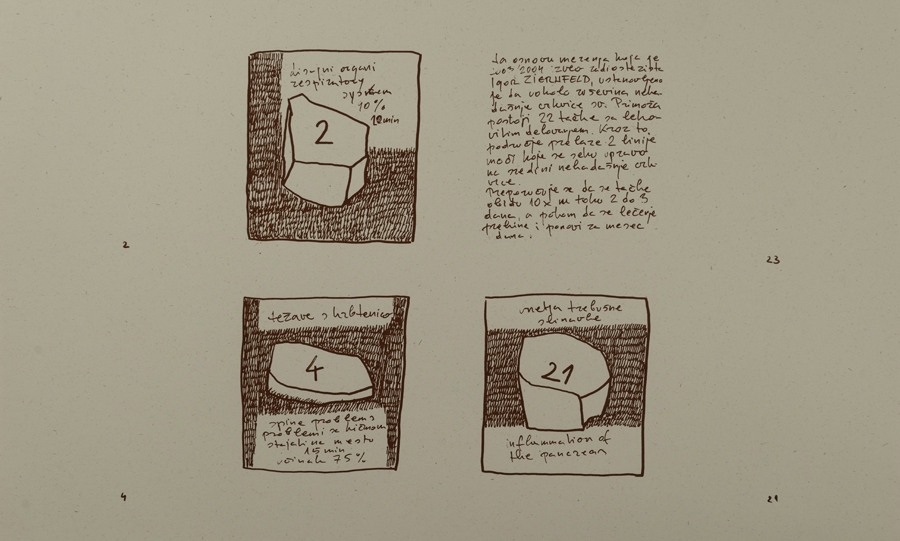 disajni organi
respiratory
system
10%
10min
2
2
Na osnovu merenja koja je
2004 izveo radiestezista
Igor ZIERNFELD, ustanovljeno
je da okolo ruševina neka-
dašnje crkvice sv. Primoža
postoji 22 tačke sa leko-
vitim delovanjem. Kroz to
područje prelaze 2 linije
moći koje se seku upravo
na sredini nekadašnje crk-
vice.
Preporučuje se da se tačke
obiđu 10x u toku 2 do 3
dana, a potom da se lečenje
prekine i ponovi za mesec
dana.
23
težave s hrbtenico
4
spine problems
problemi sa kičmom
stajati na mestu
15 min
učinak 75%
4
vnetja trebušne
slinavke
21
inflammation of
the pancreas
21